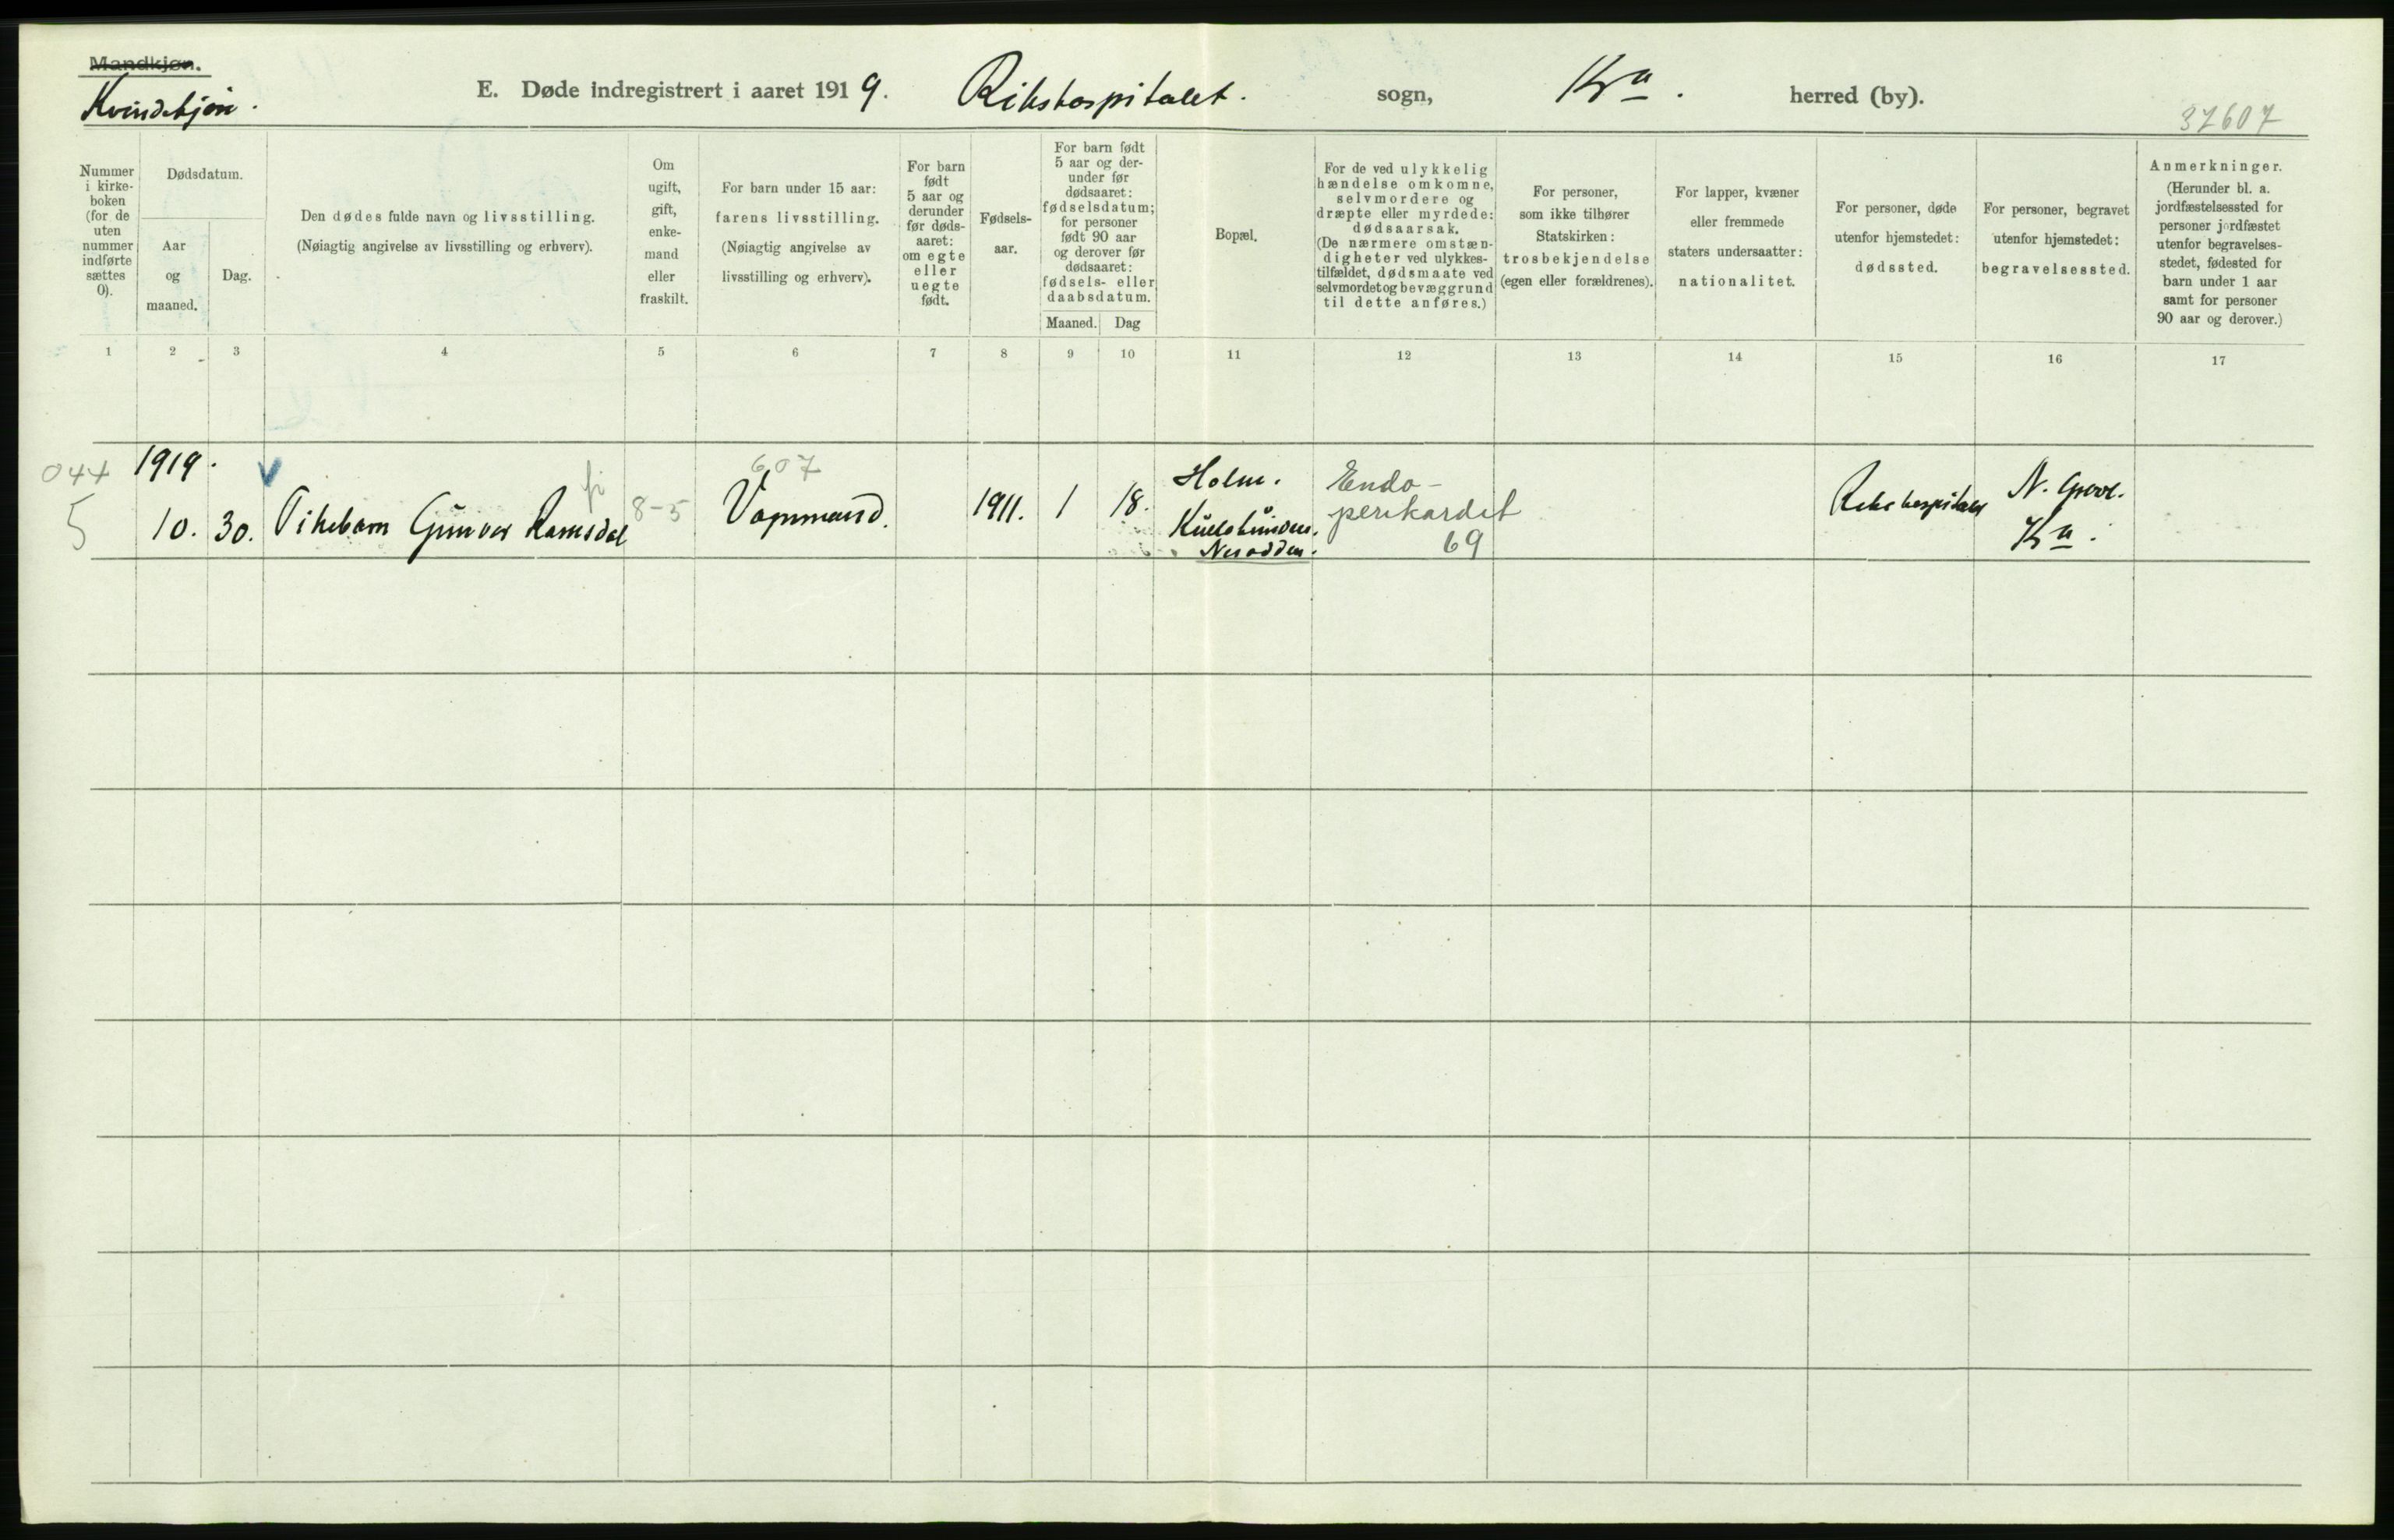 Mandkjøn.
Kvindekjøn.
E. Døde indregistrert i aaret 1919. Rikshospitalet. sogn, Kra. herred (by).
37607
Nummer
i kirke-
boken
(for de
uten
nummer
indførte
sættes
0).
Dødsdatum.
Aar
og
maaned.
Dag.
Den dødes fulde navn og livsstilling.
(Nøiagtig angivelse av livsstilling og erhverv).
Om
ugift,
gift,
enke-
mand
eller
fraskilt.
For barn under 15 aar:
farens livsstilling.
(Nøiagtig angivelse av
livsstilling og erhverv).
For barn
født
5 aar og
derunder
før døds-
aaret:
om egte
eller
uegte
født.
Fødsels-
aar.
For barn født
5 aar og der-
under før
dødsaaret:
fødselsdatum;
for personer
født 90 aar
og derover før
dødsaaret:
fødsels- eller
daabsdatum.
Maaned. Dag
Bopæl.
For de ved ulykkelig
hændelse omkomne,
selvmordere og
dræpte eller myrdede:
dødsaarsak.
(De nærmere omstæn-
digheter ved ulykkes-
tilfældet, dødsmaate ved
selvmordet og bevæggrund
til dette anføres.)
For personer,
som ikke tilhører
Statskirken:
trosbekjendelse
(egen eller forældrenes).
For lapper, kvæner
eller fremmede
staters undersaatter:
nationalitet.
For personer, døde
utenfor hjemstedet:
dødssted.
For personer, begravet
utenfor hjemstedet:
begravelsessted.
Anmerkninger.
(Herunder bl. a.
jordfæstelsessted for
personer jordfæstet
utenfor begravelses-
stedet, fødested for
barn under 1 aar
samt for personer
90 aar og derover.)
1 2 3 4 5 6 7 8 9 10 11 12 13 14 15 16 17
044
5
1919.
10. 30. Pikebarn Gunvor Ramsdal
8-5
607
Vognmand.
1911. 1 18.
Holm.
Nesodden.
Endo-
perikardit
69
Rikshospitalet
N. Grav.
Kra.